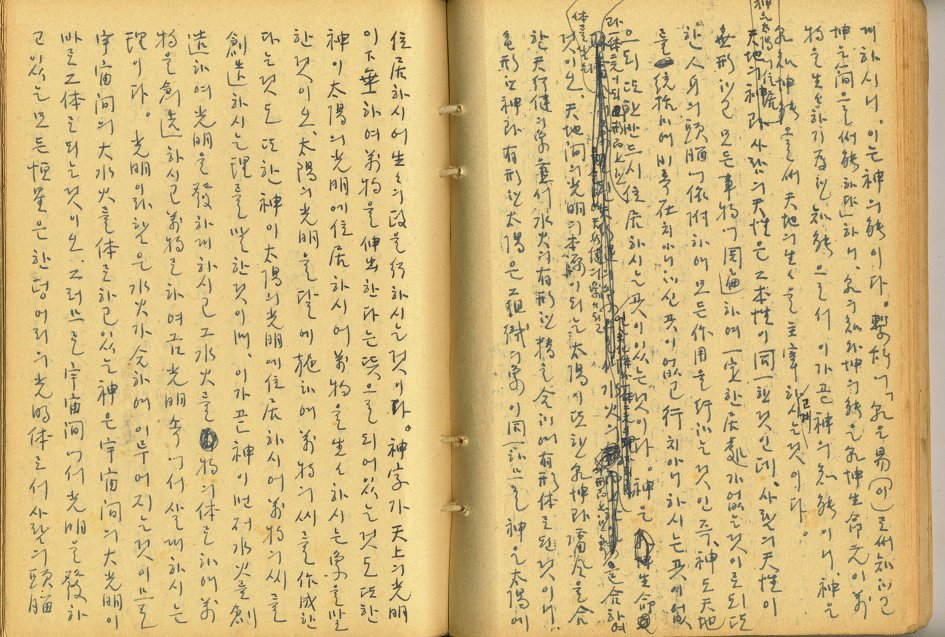 게하시니, 이는 神의 能이다. 繫辭에 「乾은 易(이)로써 知하고
坤은 簡으로써 能하다」하니, 乾의 知와 坤의 能은 乾坤生命元이 萬
物을 生生하기 爲한 知能으로서 이가 곧 神의 知能이니 神은
乾知坤能으로써 天地의 生生을 主宰하시는 것이다.
天地의 神과 사람의 天性은 그 本性이 同一한 것인데, 사람의 天性이
無形하고 모든 事物에 周遍하여 一定한 居處가 없는 것이로되 또
한 人身의 頭腦에 依附하여 모든 作用을 行하는 것인즉, 神도 天地
를 統括하여 비록 在치 아니하신 곳이 없고 行치 아니하시는 곳이 없
으되 또한 반드시 住居하시는 곳이 있는 것이다. 神은 生命
것이오, 天地間의 光明의 本源이 되는 太陽이 또한 乾坤과 陰陽을 合
한 天行健의 象 水火의 有形한 精을 合하여 有形体로 된 것이니
無形한 神과 有形한 太陽은 그 組織의 象이 同一함으로 神은 太陽에
住居하시어 生生의 政을 行하시는 것이다. 神字가 天上의 光明
이 下垂하여 萬物을 伸出한다는 뜻으로 되어 있는 것도 또한
神이 太陽의 光明에 住居하시어 萬物을 生生하시는 象을 말
한 것이오, 太陽의 光明을 달에 施하여 萬物의 씨를 作成한
다는 것도 또한 神이 太陽의 光明에 住居하시어 萬物의 씨를
創造하시는 理를 말한 것이며, 이가 곧 神이 먼저 水火를 創
造하여 光明을 發하게 하시고 그 水火를 物의 体로 하여 萬
物을 創造하시고 萬物로 하여금 光明 속에서 살게 하시는
理이다. 光明이라 함은 水火가 合하여 이루어지는 것이므로
宇宙間의 大水火를 体로 하고 있는 神은 宇宙間의 大光明이
바로 그 体로 되는 것이오, 그러므로 宇宙間에서 光明을 發하
고 있는 모든 恒星은 한 덩어리의 光明体로서 사람의 頭腦